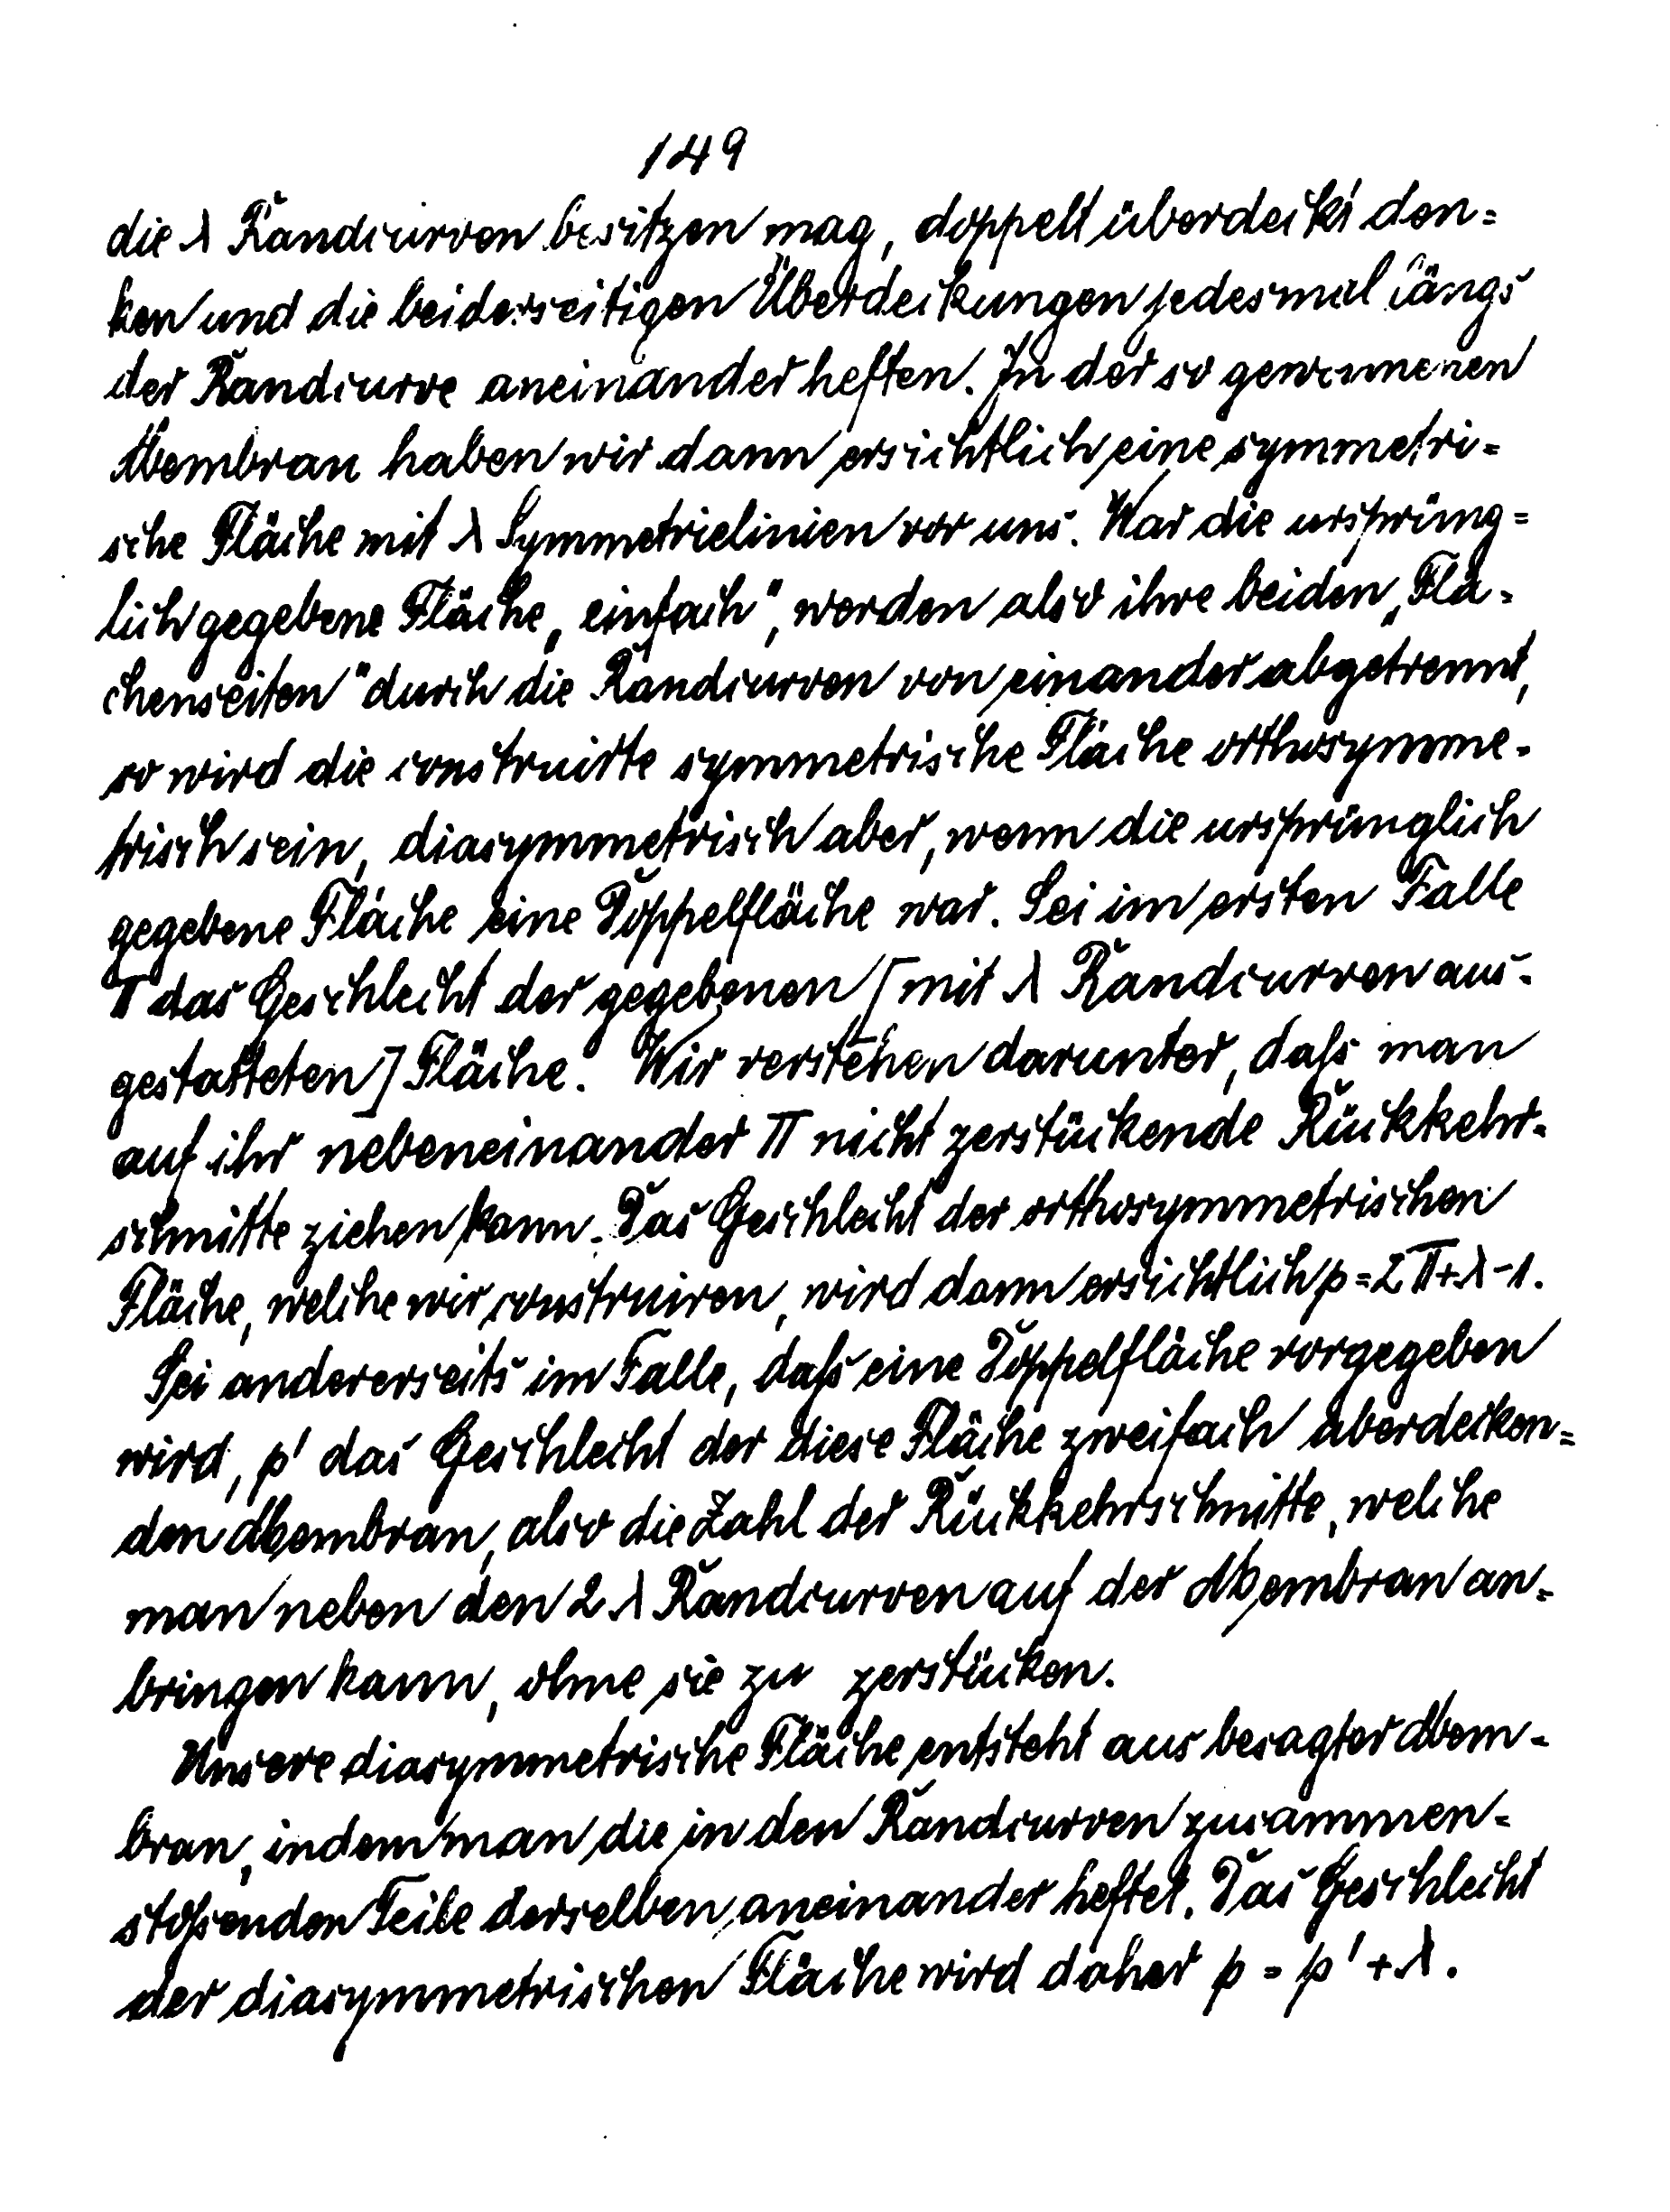 149
die λ Randcurven besitzen mag, doppelt überdeckt den=
ken und die beiderseitigen Überdeckungen jedesmal längs
der Randcurve aneinander heften. In der so gewonnenen
Membran haben wir dann ersichtlich eine symmetri=
sche Fläche mit λ Symmetrielinien vor uns. War die ursprüng=
lich gegebene Fläche „einfach", werden also ihre beiden „Flä-
chenseiten" durch die Randcurven von einander abgetrennt,
so wird die construirte symmetrische Fläche orthosymme-
trisch sein, diasymmetrisch aber, wenn die ursprünglich
gegebene Fläche eine Doppelfläche war. Sei im ersten Falle
π das Geschlecht der gegebenen [mit λ Randcurven aus-
gestatteten] Fläche. Wir verstehen darunter, daſs man
auf ihr nebeneinander π nicht zerstückende Rückkehr-
schnitte ziehen kann. Das Geschlecht der orthosymmetrischen
Fläche, welche wir construiren, wird dann ersichtlich p=2π+λ-1.
Sei andererseits im Falle, daſs eine Doppelfläche vorgegeben
wird, p' das Geschlecht der diese Fläche zweifach überdecken=
den Membran, also die Zahl der Rückkehrschnitte, welche
man neben den 2λ Randcurven auf der Membran an-
bringen kann, ohne sie zu zerstücken.
Unsere diasymmetrische Fläche entsteht aus besagter Mem-
bran, indem man die in den Randcurven zusammen-
stoſsenden Teile derselben aneinander heftet. Das Geschlecht
der diasymmetrischen Fläche wird daher p = p' + λ.